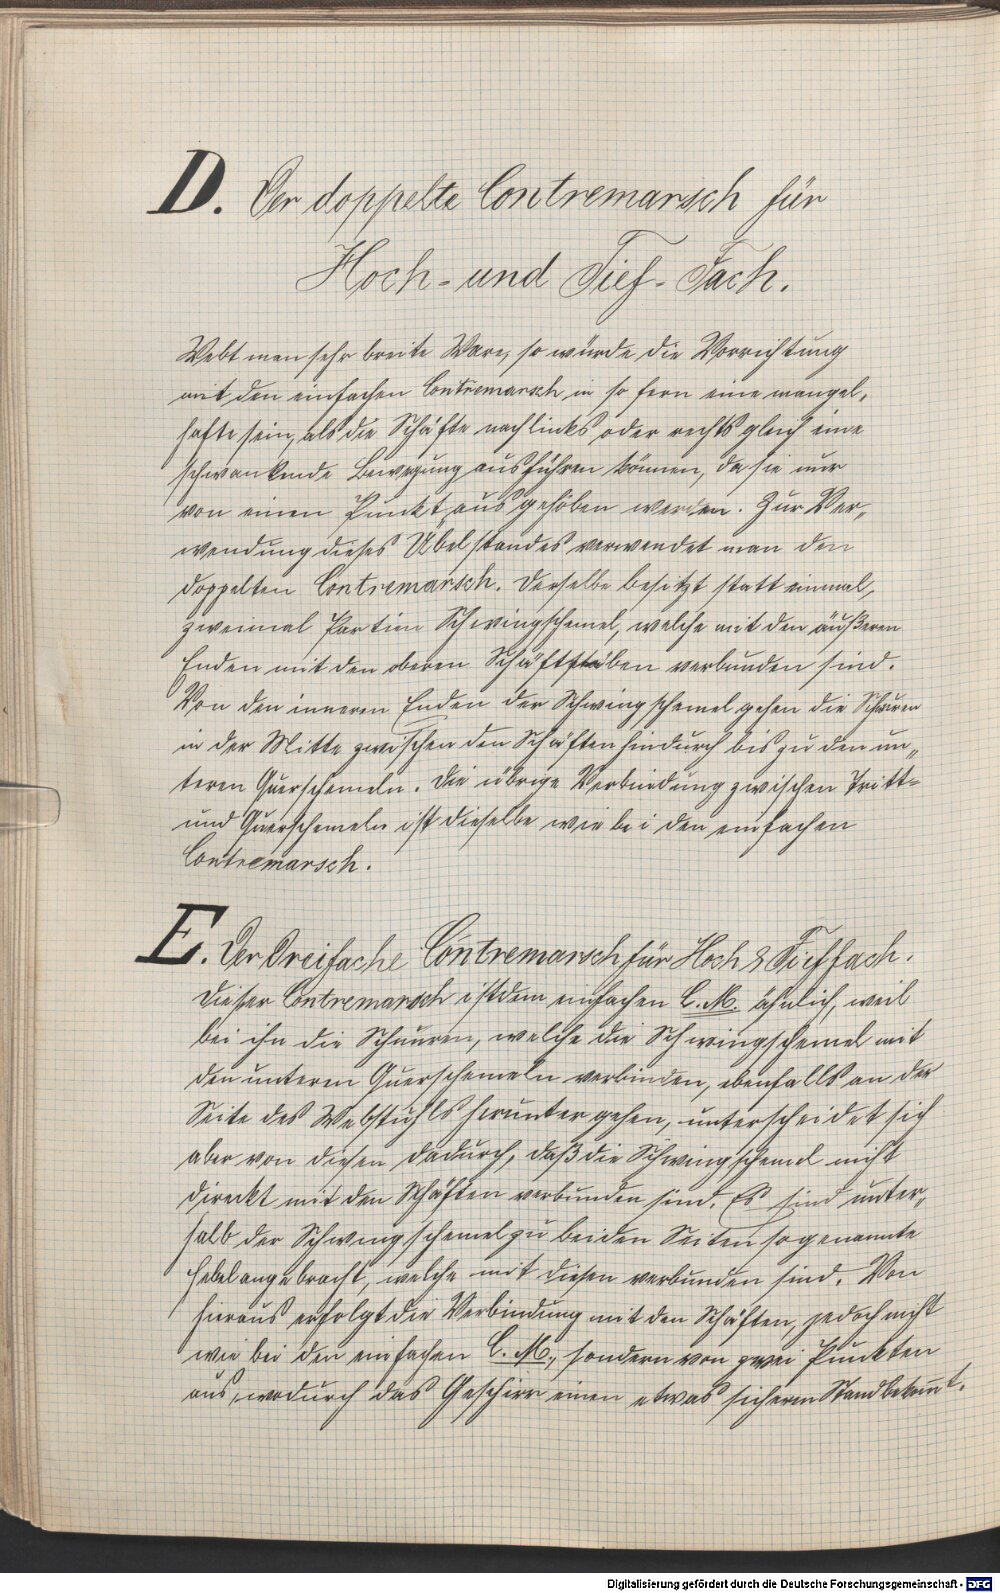 D. Der doppelte Contremarsch für
Hoch- und Tief- Fach.
Webt man sehr breite Ware, so würde die Vorrichtung
mit den einfachen Contremarsch in so fern eine mangel,
hafte sein, als die Schäfte nach links oder rechts gleich eine
schwankende Bewegung ausführen können, da sie nur
von einen Punkt aus gehoben werden. Zur Ver„
wendung dieses Übelstandes verwendet man den
doppelten Contremarsch. Derselbe besitzt statt einmal,
zweimal Partien Schwingschemel, welche mit den äußeren
Enden mit den oberen Schäftstäben verbunden sind.
Von den inneren Enden der Schwingschemel gehen die Schnuren
in der Mitte zwischen den Schäften hindurch bis zu den un„
teren Querschemeln. Die übrige Verbindung zwischen Tritt-
und Querschemeln ist dieselbe wie bei den einfachen
Contremarsch.
E. Der Dreifache Contremarsch für Hoch & Tieffach.
Dieser Contremarsch ist dem einfachen C. M. ähnlich, weil
bei ihn die Schnuren, welche die Schwingschemel mit
den unteren Querschemeln verbinden, ebenfalls an der
Seite des Webstuhls herunter gehen, unterscheidet sich
aber von diesen dadurch, daß die Schwingschemel nicht
direckt mit den Schäften verbunden sind. Es sind unter„
halb der Schwingschemel zu beiden Seiten sogenannte
Hebel angebracht, welche mit diesen verbunden sind. Von
hieraus erfolgt die Verbindung mit den Schäften, jedoch nicht
wie bei den einfachen C. M., sondern von zwei Punkten
aus, wodurch das Geschirr einen etwas sicheren Stand bekomt.
Digitalisierung gefördert durch die Deutsche Forschungsgemeinschaft - DFG